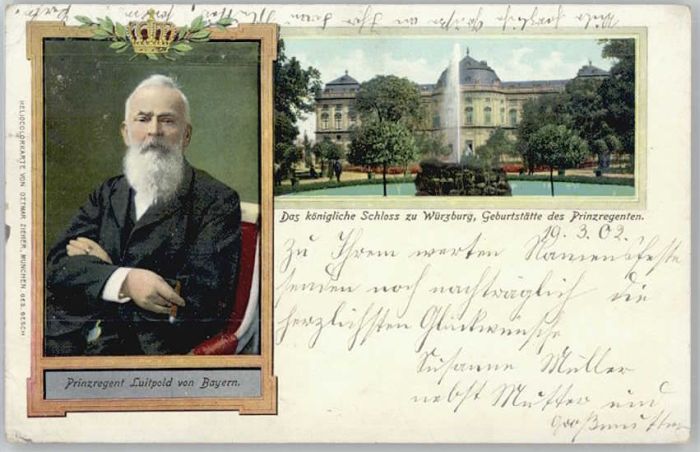 Das königliche Schloss zu Würzburg, Geburtstätte des Prinzregenten.
19. 3. 02.
Zu Ihrem werten Namensfeste
senden noch nachträglich die
herzlichsten Glückwünsche
Susanne Müller
nebst Mutter und
Großmutter
Prinzregent Luitpold von Bayern.
HELIOCOLORKARTE VON OTTMAR ZIEHER, MÜNCHEN GES. GESCH.